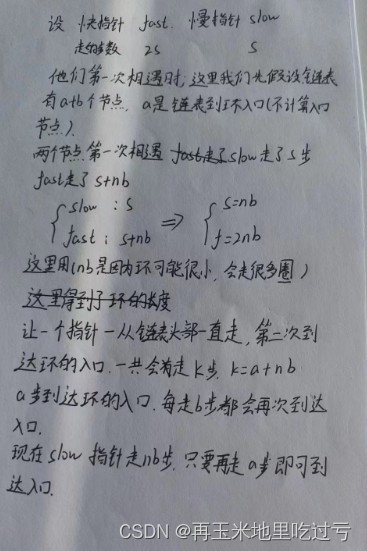 设 快指针 fast. 慢指针 slow
走的步数 2s s
他们第一次相遇时,这里我们先假设链表
有a+b个节点, a是链表到环入口(不计算入口
节点).
两个节点第一次相遇 fast走了slow走了s步
fast走了 s+nb
{ slow : s ⇒ { s=nb
fast : s+nb f=2nb
这里用(nb是因为环可能很小,会走很多圈)
这里得到了环的长度
让一个指针一从链表头部一直走,第二次到
达环的入口.一共会走k步. k=a+nb
a步到达环的入口.每走b步都会再次到达
入口.
现在slow 指针走nb步.只要再走a步即可到
达入口.
CSDN @再玉米地里吃过亏